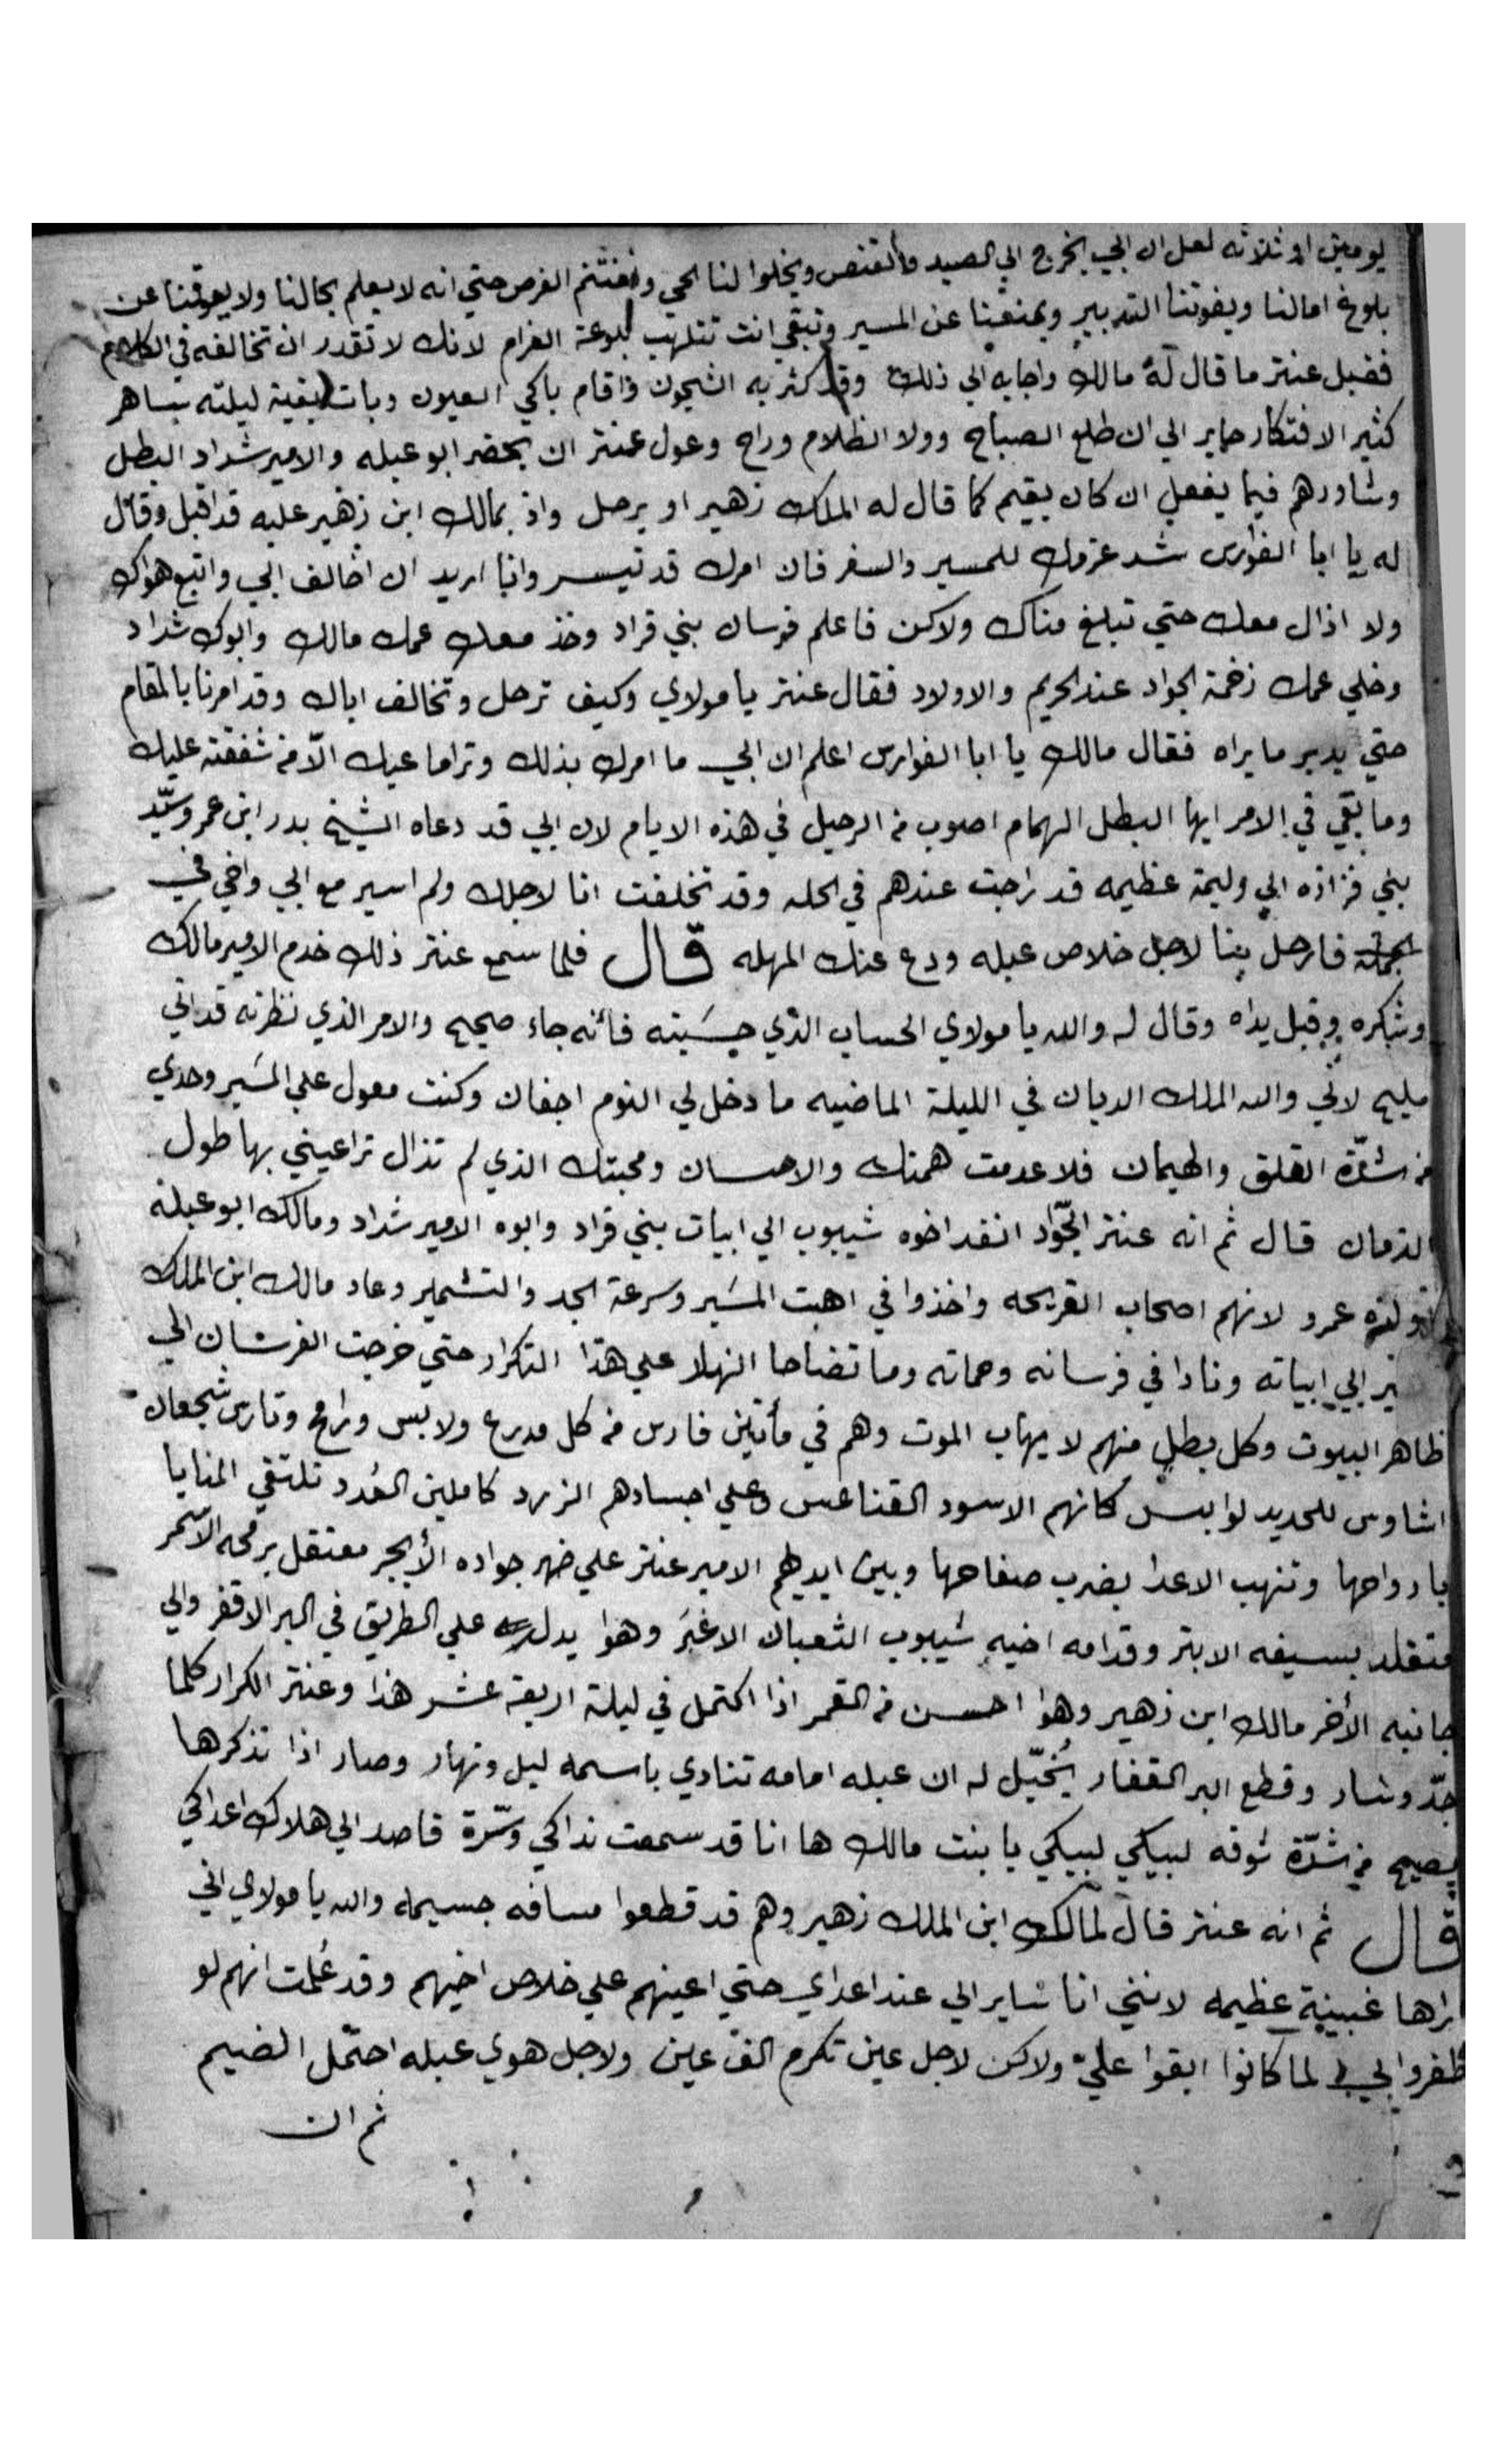 يومين او ثلاثه لعل ان ابي يخرج الي الصيد والقنص ويخلوا لنا الحي ونغتنم الفرص حتي انه لا يعلم بحالنا ولا يعوقنا عن
بلوغ امالنا ويفوتنا التدبير ويمنعنا عن المسير وتبقي انت تتلهب بلوعة الغرام لانك لا تقدر ان تخالفه في الكلام
فقبل عنتر ما قال له مالك واجابه الي ذلك وقد كثر به الشجون واقام باكي العيون وبات بقية ليلته ساهر
كثير الافتكار حاير الي ان طلع الصباح وولا الظلام وراح وعول عنتر ان يحضر ابو عبله والامير شداد البطل
وشاورهم فيما يفعل ان كان يقيم كما قال له الملك زهير او يرحل واذ بمالك ابن زهير عليه قد اقبل وقال
له يا ابا الفوارس شد عزمك للمسير والسفر فان امرك قد تيسر وانا اريد ان اخالف ابي واتبع هواك
ولا ازال معك حتي تبلغ مناك ولاكن فاعلم فرسان بني قراد وخذ معك عمك مالك وابوك شداد
وخلي عمك زخمة الجواد عند الحريم والاولاد فقال عنتر يا مولاي وكيف ترحل وتخالف اباك وقد امرنا بالمقام
حتي يدبر ما يراه فقال مالك يا ابا الفوارس اعلم ان ابي ما امرك بذلك وتراما عيك الّا من شفقته عليك
وما بقي في الامر ايها البطل الهمام اصوب من الرحيل في هذه الايام لان ابي قد دعاه الشيخ بدر ابن عمرو سيّد
بني فزازه الي وليمة عظيمه قد راجت عندهم في الحله وقد تخلفت انا لاجلك ولم اسير مع ابي واخي في
الجمله فارحل بنا لاجل خلاص عبله ودع عنك المهله قال فلما سمع عنتر ذلك خدم الامير مالك
وشكره وقبل يداه وقال له والله يا مولاي الحساب الذي حسبته فانه جاء صحيح والامر الذي نظرته قد اتي
مليح لاني والله الملك الديان في الليلة الماضيه ما دخل لي النوم اجفان وكنت معول علي المسير وحدي
من شدّة القلق والهيمان فلا عدمت همتك والاحسان ومحبتك الذي لم تزال تراعيني بها طول
الزمان قال ثم انه عنتر الجوّاد انفد اخوه شيبوب الي ابيات بني قراد وابوه الامير شداد ومالك ابو عبلة
عمرو لانهم اصحاب القريحه واخذوا في اهبت المسير وسرعة الجد والتشمير وعاد مالك ابن الملك
الي ابياته ونادا في فرسانه وحماته وما تضاحا النهار علي هذا التكرار حتي خرجت الفرسان الي
ظاهر البيوت وكل بطل منهم لا يهاب الموت وهم في مأتين فارس من كل مدرع ولابس ورامح وتارس شجعان
اشاوس للحديد لوابس كانهم الاسود القناعس وعلي اجسادهم الزرد كاملين العُدد تلتقي المنايا
بارواحها وتنهب الاعدا بضرب صفاحها وبين ايديهم الامير عنتر علي ضهر جواده الأبجر معتقل برمحه الاسمر
متقلد بسيفه الابتر وقدامه اخيه شيبوب الثعبان الاغبر وهوا يدله علي الطريق في البر الاقفر والي
جانبه الأخر مالك ابن زهير وهوا احسن من القمر اذا اكتمل في ليلة اربعة عشر هذا وعنتر الكرار كلما
جدّ وسار وقطع البر القفار يُخيّل له ان عبله امامه تنادي باسمه ليل ونهار وصار اذا تذكرها
يصيح من شدّة شوقه لبيكي لبيكي يا بنت مالك ها انا قد سمعت نداكي وسرّة قاصد الي هلاك اعداكي
قال ثم انه عنتر قال لمالك ابن الملك زهير وهم قد قطعوا مسافه جسيمه والله يا مولاي اني
اراها غبينة عظيمه لانني انا ساير الي عند اعداي حتي اعينهم علي خلاص اخيهم وقد علمت انهم لو
ظفروا بي لما كانوا ابقوا عليّ ولاكن لاجل عين تكرم الف عين ولاجل هوي عبله احتمل الضيم
ثم ان